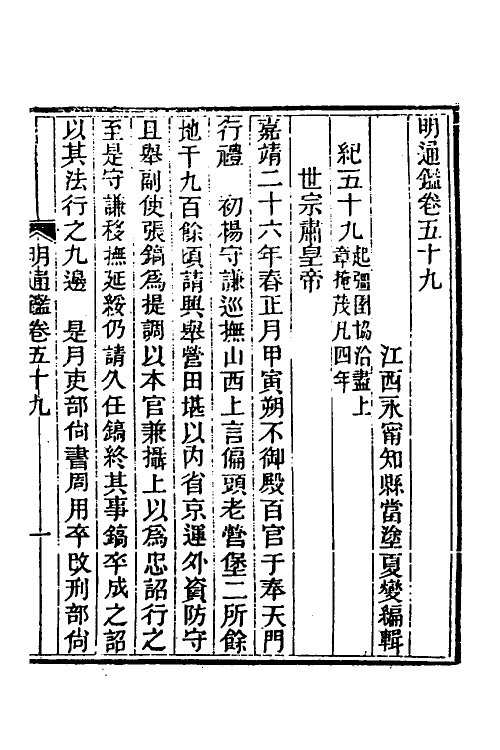 明通鑑卷五十九
江西永甯知縣當塗夏燮編輯
紀五十九起彊圉協洽盡上
章掩茂凡四年
世宗肅皇帝
嘉靖二十六年春正月甲寅朔不御殿百官于奉天門
行禮　初楊守謙巡撫山西上言偏頭老營堡二所餘
地千九百餘頃請興舉營田堪以內省京運外資防守
且舉副使張鎬爲提調以本官兼攝上以爲忠詔行之
至是守謙移撫延綏仍請久任鎬終其事鎬卒成之詔
以其法行之九邊　是月吏部尙書周用卒改刑部尙
明通鑑卷五十九
一